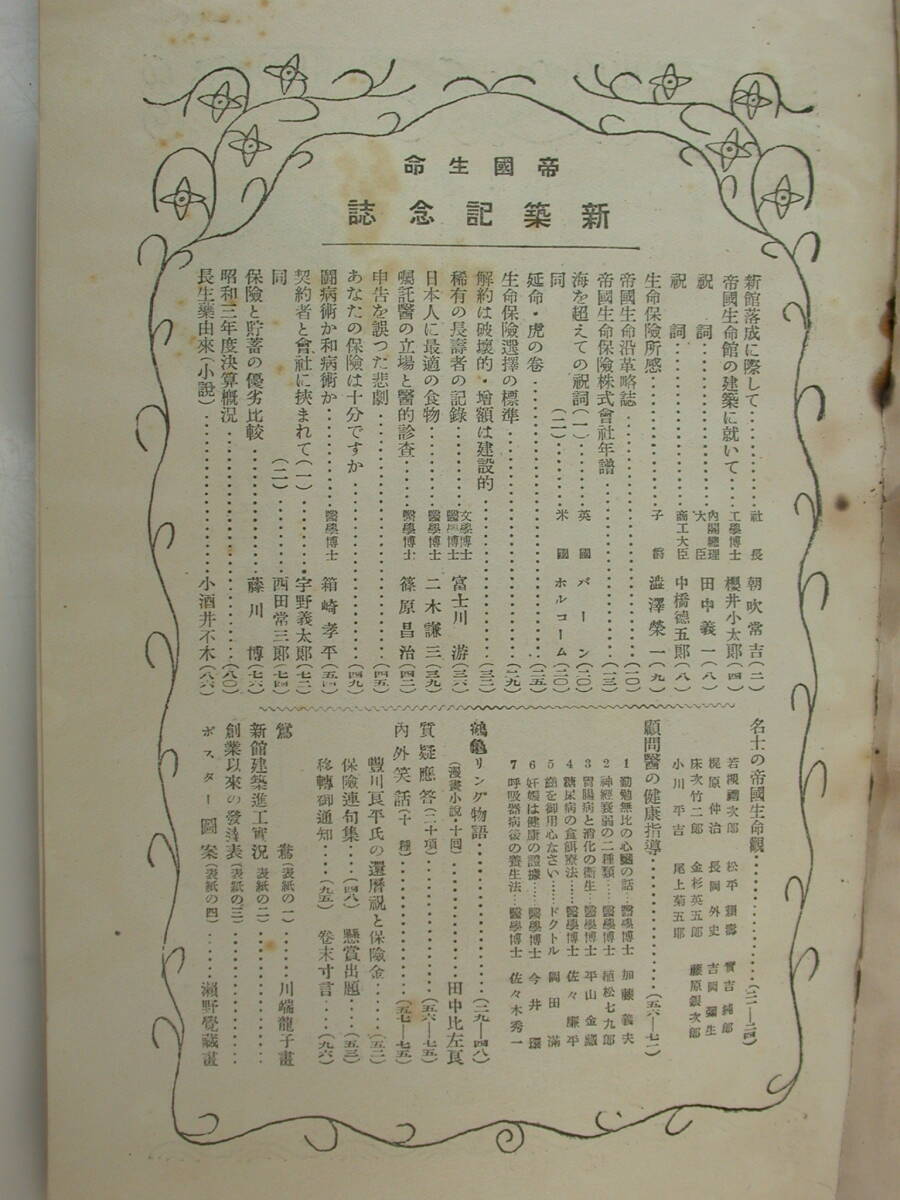 帝國生命
新築記念誌
新館落成に際して………社長 朝吹常吉(二)
帝國生命館の建築に就いて…工學博士 櫻井小太郎(四)
祝詞………內閣總理大臣 田中義一(八)
祝詞………商工大臣 中橋德五郎(八)
生命保險所感………子爵 澁澤榮一(九)
帝國生命沿革略誌………(一〇)
帝國生命保險株式會社年譜………(一三)
海を超えての祝詞(一)………英國 バーン(二〇)
同(二)………米國 ホルコーム(二〇)
延命・虎の卷………(二五)
生命保險選擇の標準………(二九)
解約は破壞的・增額は建設的………(三二)
稀有の長壽者の記錄………文學博士 醫學博士 富士川游(三六)
日本人に最適の食物………醫學博士 二木謙三(三九)
囑託醫の立場と醫的診査………醫學博士 篠原昌治(四二)
申告を誤つた悲劇………(四五)
あなたの保險は十分ですか………(四九)
鬪病術か和病術か………醫學博士 箱崎孝平(五四)
契約者と會社に挾まれて(一)………宇野義太郎(七二)
同(二)………西田常三郎(七四)
保險と貯蓄の優劣比較………藤川博(七六)
昭和三年度決算槪況………(八〇)
長生藥由來(小說)………小酒井不木(八六)
名士の帝國生命觀………(二二—二四)
若槻禮次郎 松平賴壽 實吉純郎
梶原仲治 長岡外史 吉岡彌生
床次竹二郎 金杉英五郎 藤原銀次郎
小川平吉 尾上菊五郎
顧問醫の健康指導………(五六—七一)
1 勤勉無比の心臟の話…醫學博士 加藤義夫
2 神經衰弱の二種類…醫學博士 植松七九郎
3 胃腸病と消化の衞生…醫學博士 平山金藏
4 糖尿病の食餌療法…醫學博士 佐々廉平
5 蟲を御用心なさい…ドクトル 岡田滿
6 妊娠は健康の證據…醫學博士 今井環
7 呼吸器病後の養生法…醫學博士 佐々木秀一
鶴龜リング物語………(二九—四八)
(漫畫小說・十回)………田中比左良
質疑應答(二十項)………(五六—七五)
內外笑話(十種)………(五七—七五)
豐川良平氏の還曆祝と保險金…(五二)
保險連句集…(四八) 懸賞出題…(五三)
移轉御通知…(九五) 卷末寸言…(九六)
鴛鴦(表紙の一)………川端龍子畫
新館建築進工實況(表紙の二)………
創業以來の發達表(表紙の三)………
ポスター圖案(表紙の四)………瀨野覺藏畫